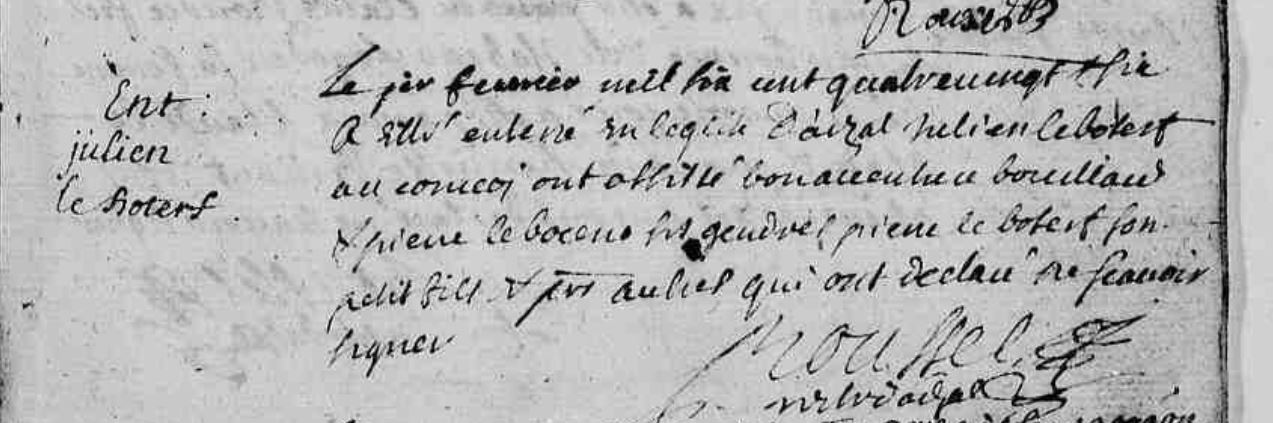 Ent
julien
le Boterf
Le per feuvrier mil six cent quatre vingt & six
A esté enterré en leglise d'arzal Julien le boterf
au convoj ont assisté bonaventure bouillard
& pierre le boceno ses gendres pierre le boterf son
petit fils & plrs aultres qui ont declaré ne scauoir
signer
Roussel